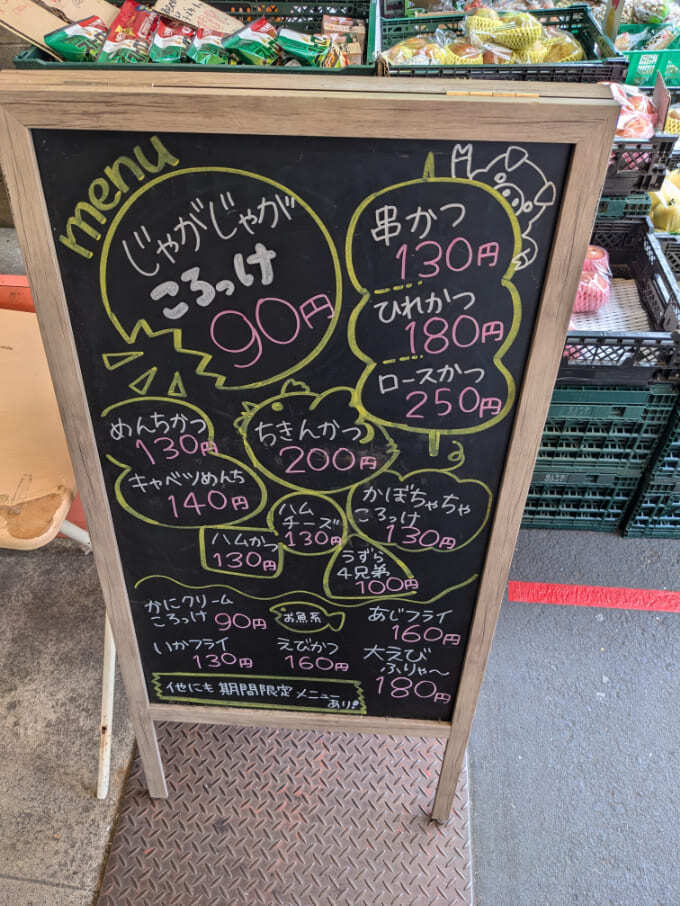 menu
じゃがじゃが
ころっけ
90円
串かつ
130円
ひれかつ
180円
ロースかつ
250円
めんちかつ
130円
キャベツめんち
140円
ちきんかつ
200円
ハムかつ
130円
ハム
チーズ
130円
かぼちゃちゃ
ころっけ
130円
うずら
4兄弟
100円
かにクリーム
ころっけ 90円
お魚系
あじフライ
160円
いかフライ
130円
えびかつ
160円
大えび
ふりゃ〜
180円
他にも 期間限定 メニュー
あり!!